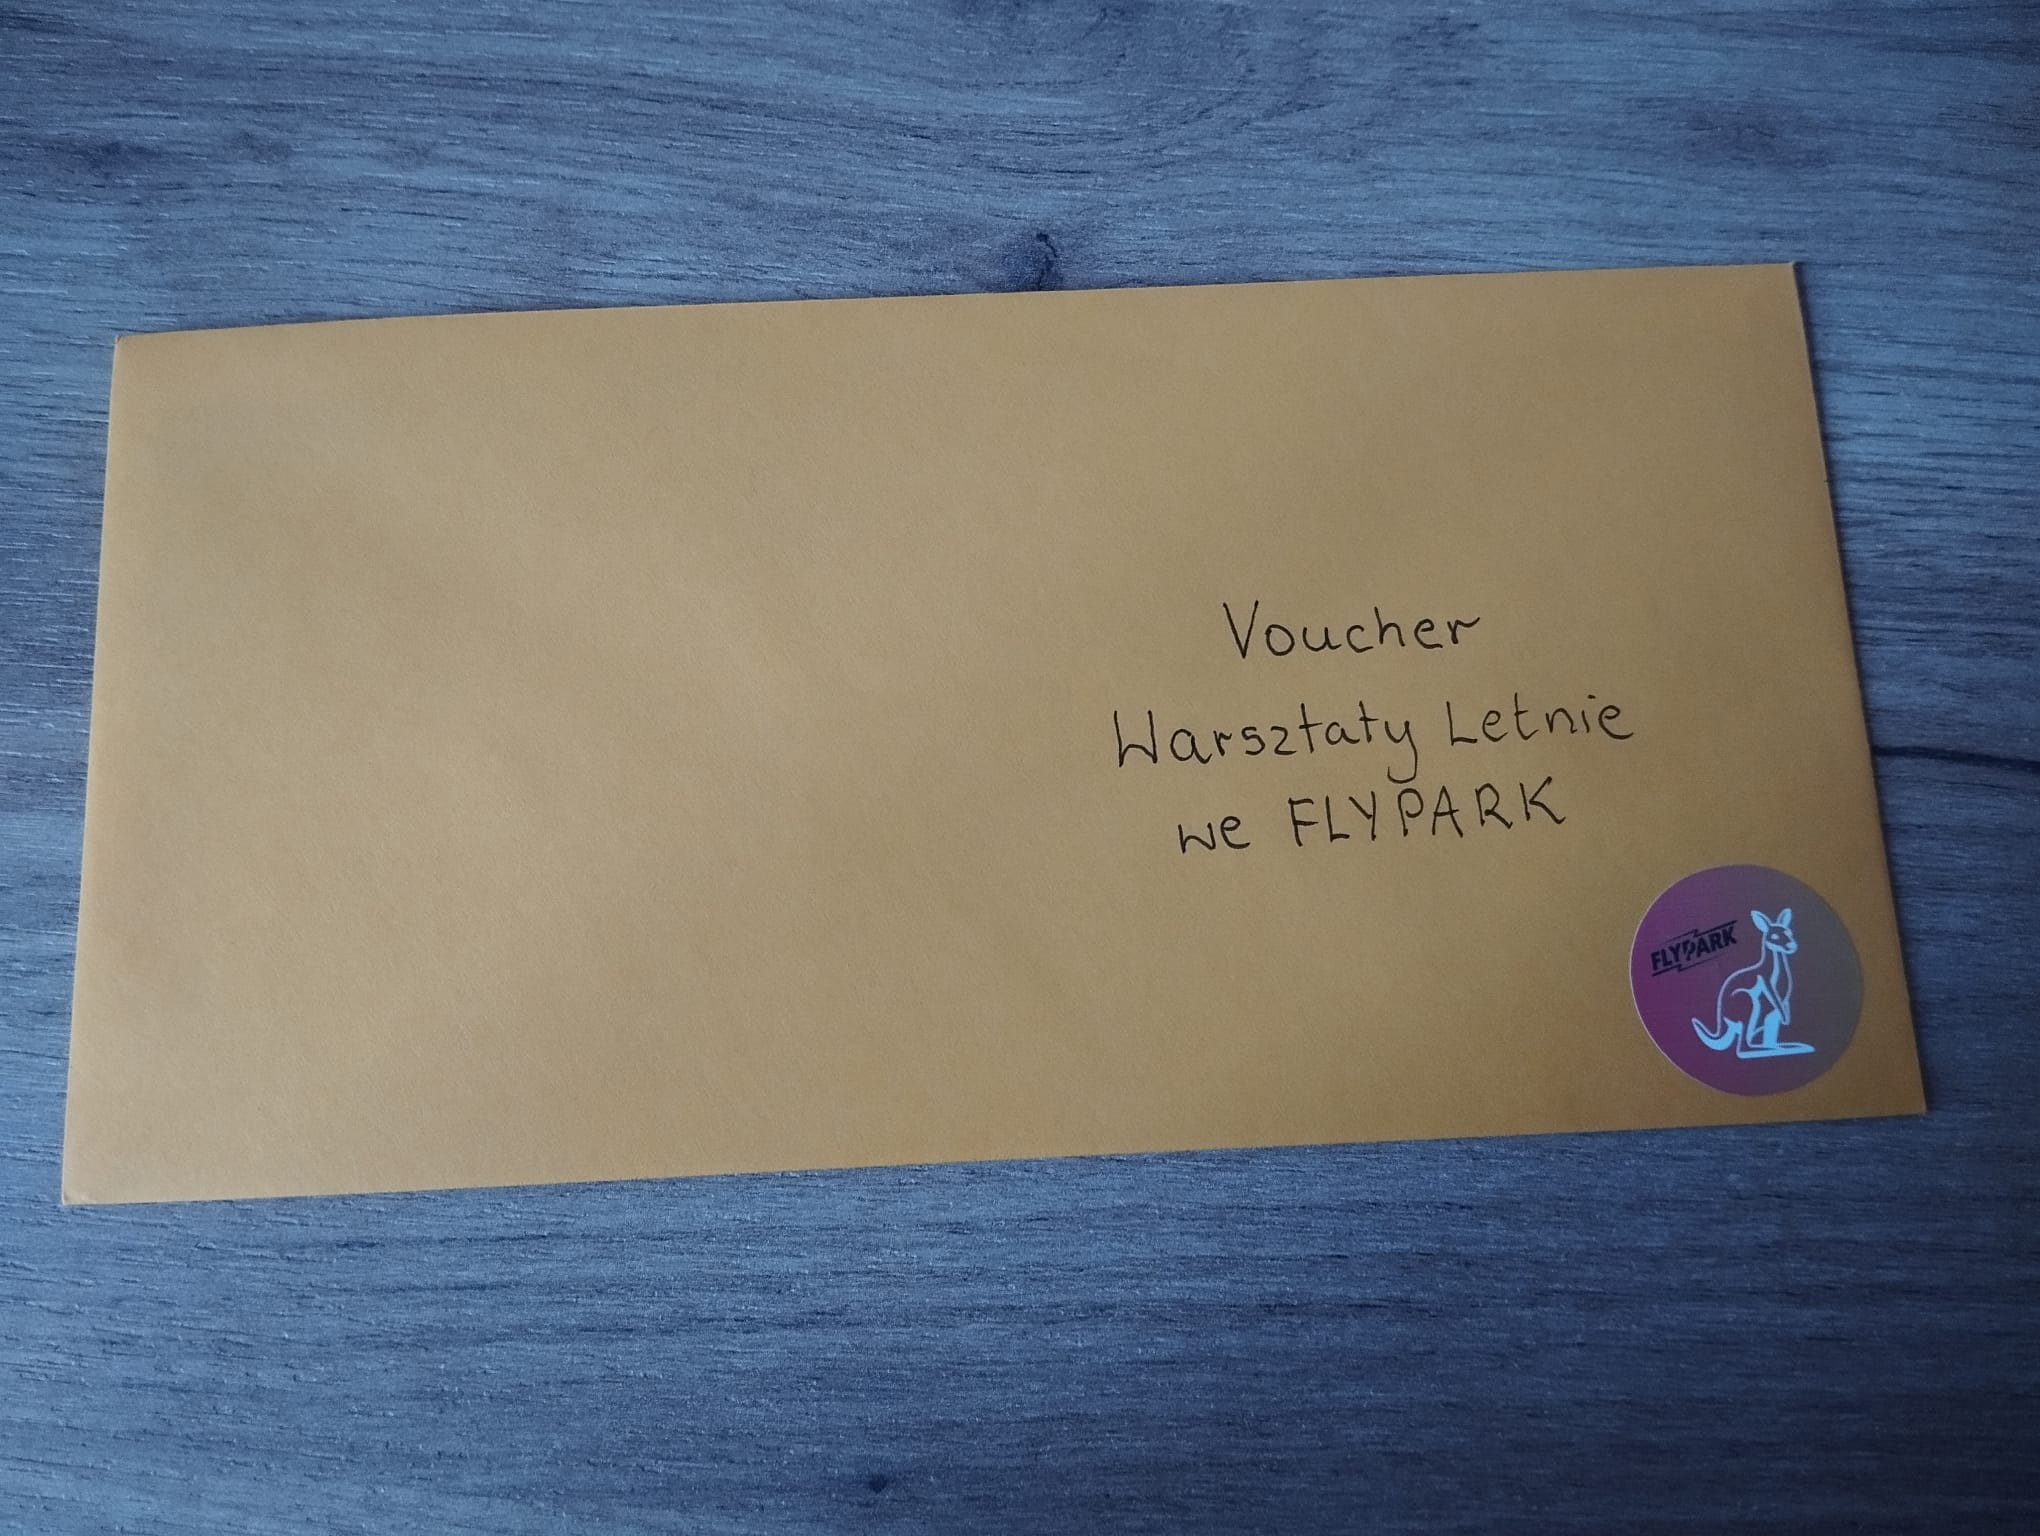 Voucher
Warsztaty Letnie
we FLYPARK
FLYPARK